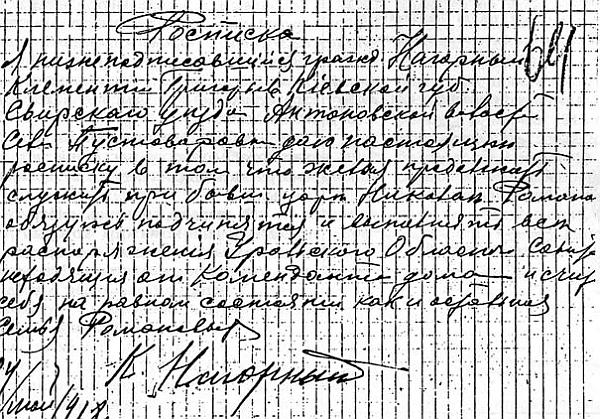 Росписка
Я нижеподписавшийся гражд Нагорный
Климентий Григорьев Киевской губ.
Свирского уезда Антоновской волост
Села Пустоваров даю настоящую
росписку в том что желая продолжат
служит при бывш царе Николае Романо
обязуюсь подчинятся и выполнять все
распоряжения Уральского Област Совде
исходящия от Коменданта дома и счит
себя на равном состоянии как и остальная
Семья Романовых
К Нагорный
24/
май 1918.